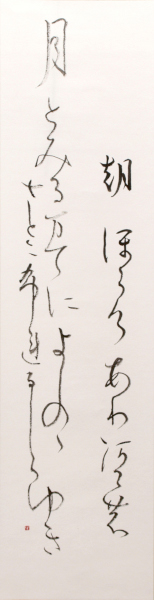 朝ほらけあり阿けの
月とみる万てによしのゝ
さとに布連るしらゆき